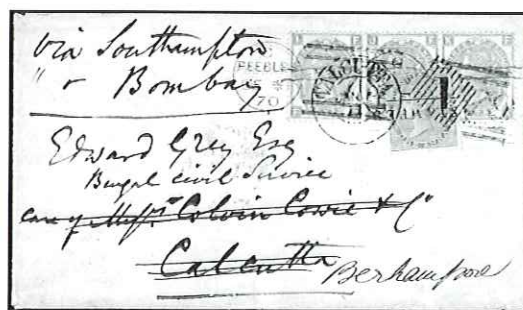 via Southampton
" & Bombay
PEEBLE
70
CALCUTTA
1
Edward Grey Esq
Bengal Civil Service
care of Messrs Colvin Cowie & Co
Calcutta
Berhampore